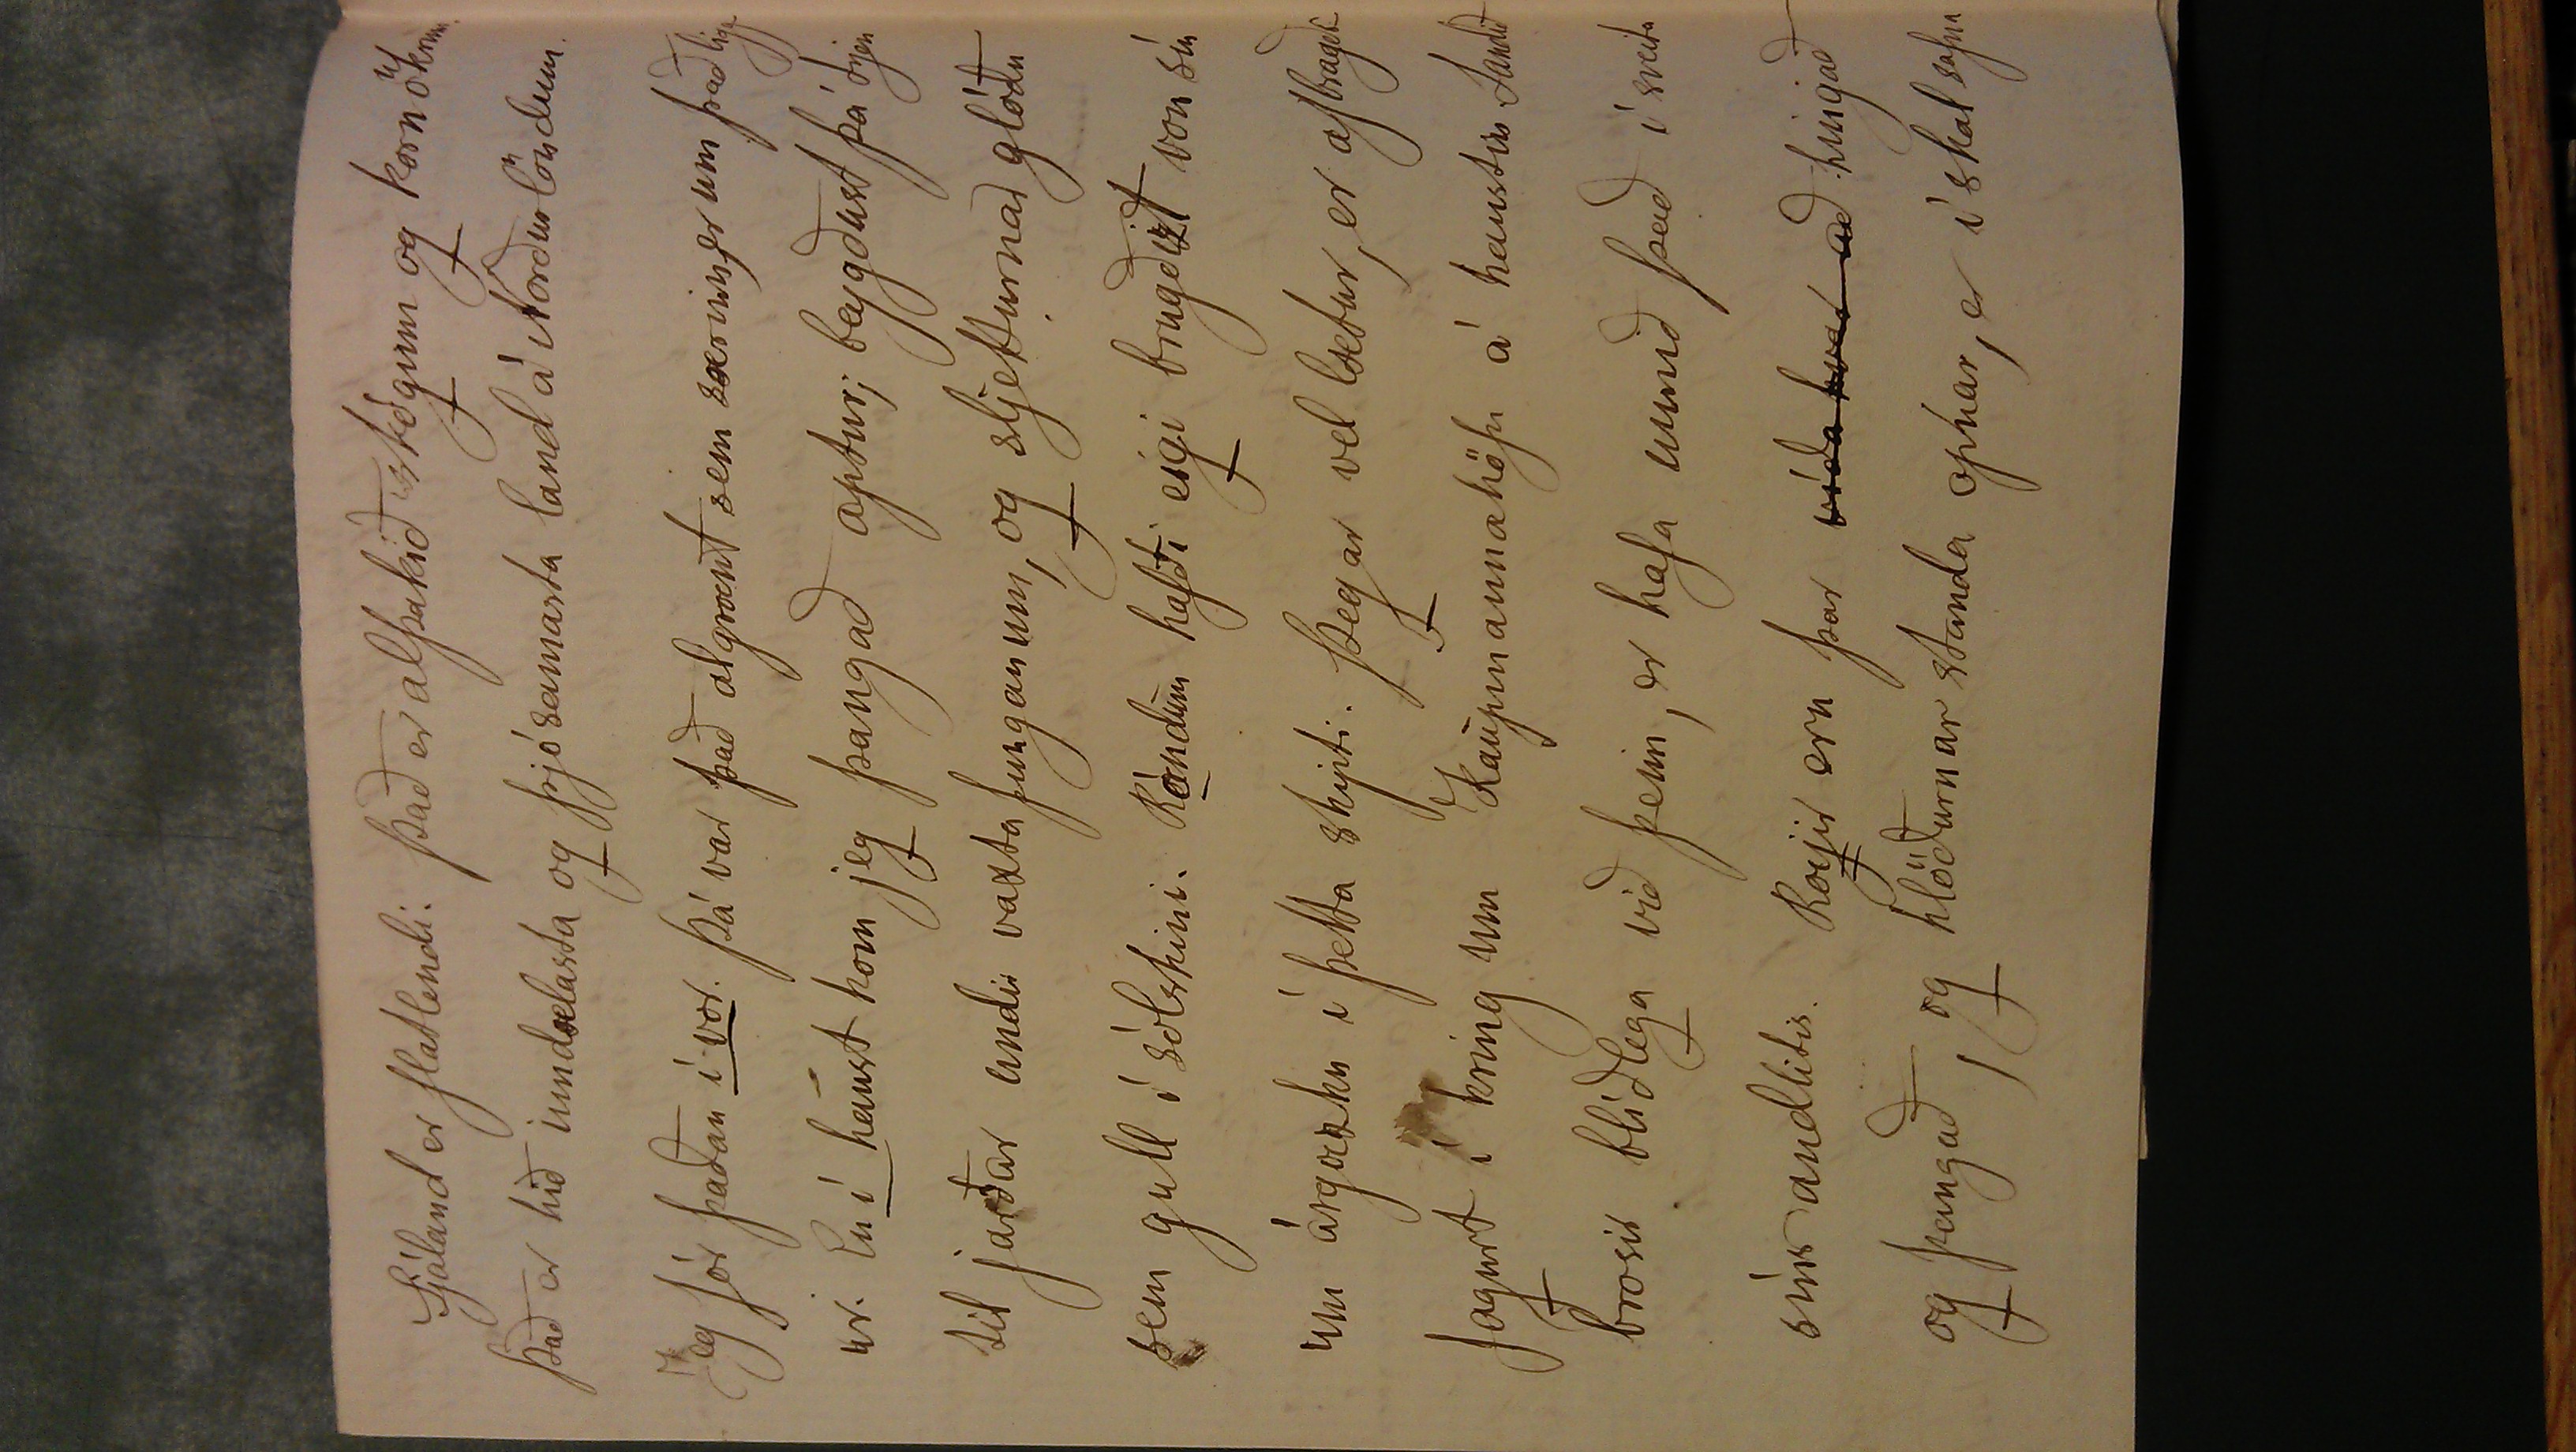 Sjáland er flatlendi: það er alþakið skógum og kornökrum.
Það er hið inndælasta og þjósamasta land á Norðurlöndum.
Jeg fór þaðan í vor. Þá var það algrænt sem særinn er um það liga
ur. En í haust kom jeg þangað aptur; beygðust þá öxjen
til jarðar undir vaxtarþunganum, og sljetturnar glóðu
sem gull í sólskini. Rændum hafði eigi brugðizt von sín
um árgæzku í þetta skipti. Þegar vel lætur, er afbragðs
fagurt í kring um Kaupmannahöfn á haustin. Landið
brosir blíðlega við þeim, er hafa unnið það í sveita
síns andlitis. Rægir eru þar víða hvar að hingað
og þangað, og hlöðurnar standa opnar, er í skal safna